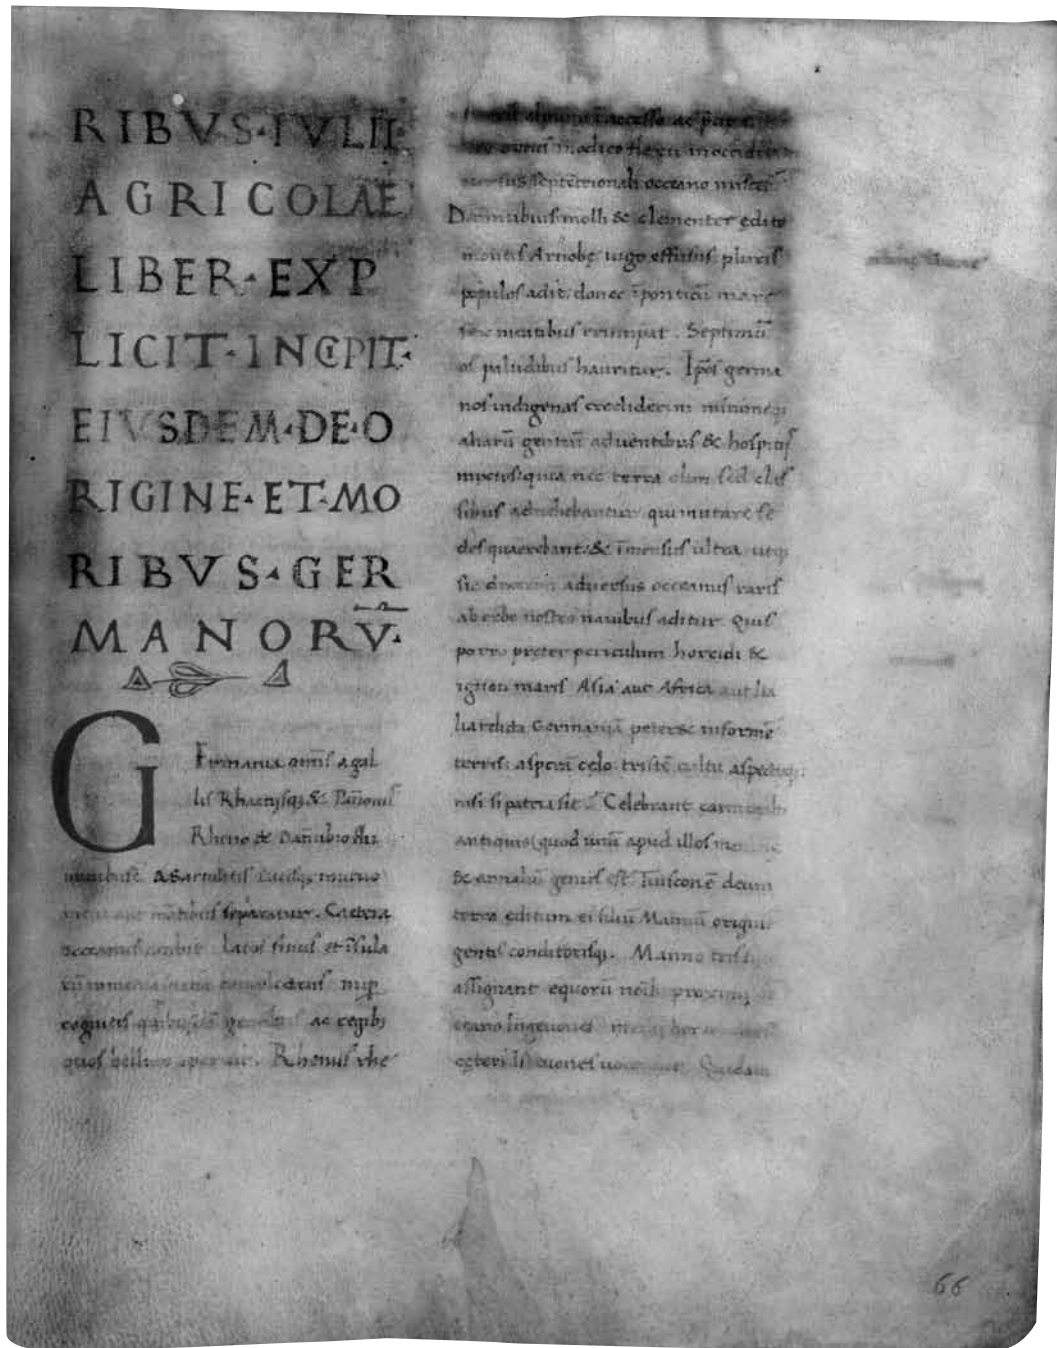 RIBVS·IVLII·
AGRICOLAE
LIBER·EXP
LICIT·INCIPIT·
EIVSDEM·DE·O
RIGINE·ET·MO
RIBVS·GER
MANORV̄·
G
Ermania omīs a gal
lis Rhaetijsq; & Pānoniis
Rheno & Danubio flu
minibus Asarmatis mutuo
aut mōtibus separatur. Caetera
occeanus ambit latos sinus et īsula
cōplectens nup
cognitis gentibus ac regib;
quos bellum aperuit. Rhenus rhe
accesso ac
modico flexu in occidentem
septētrionali occeano
Danubius molli & clementer edito
montis Arnobę iugo effusus pluris
populos adit. donec ī ponticū mare
meatibus erumpat. Septimū
os paludibus hauritur. Ip̄os germa
nos indigenas crediderim minimeq;
aliarū gentiū aduentibus & hospitijs
mixtos quia nec terra olim sed clas
sibus aduehebantur qui mutare se
des quaerebant. & īmensus ultra utq;
sic dixerim aduersus occeanus raris
ab orbe nostro nauibus aditur. Quis
porro pręter periculum horridi &
ignoti maris Asia aut Africa aut Ita
lia relicta Germaniā peteret informē
terris. asperā celo. tristē cultu aspectuq;
nisi si patria sit. Celebrant carminib;
antiquis (quod unū apud illos memoriae
& annaliū genus est. Tuisconē deum
terra editum ei filiū Mannū originē
gentis conditorisq;. Manno tris
assignant equorū noīb; proximi
ceano Ingeuones medij
cęteri Istaeuones uocentur Quidam
66